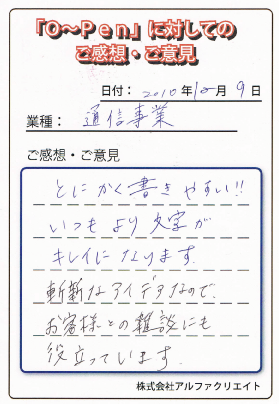 「O～Pen」に対しての
ご感想・ご意見
日付：2010年12月9日
業種：通信事業
ご感想・ご意見
とにかく書きやすい!!
いつもより文字が
キレイになります。
斬新なアイデアなので、
お客様との雑談にも
役立っています。
株式会社アルファクリエイト